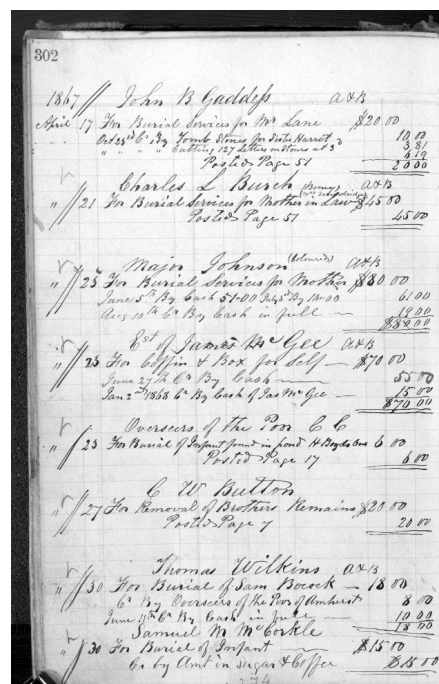 302
1867 // John B Gaddess A&B
April 17 For Burial Services for Mr Lane $20 00
Oct 25th Cr By Tomb Stones for Sister Harriot 10 00
" " " " Cutting 127 Letters on stones at 3 3 81
6 19
Posted Page 51 20 00
Charles L Burch A&B
" 21 For Burial Services for Mother in Law $45 00
Posted Page 51 45 00
Major Johnson (Coloured) A&B
" 25 For Burial Services for Mother $80.00
June 5th By Cash 51.00 By 10.00 61 00
Aug 10th Cr By Cash in full — 19 00
$80 00
Est of James McGee A&B
" 25 For Coffin & Box for Self — $70 00
June 27th Cr By Cash — 55 00
Jan 2nd 1868 Cr By Cash of Jas McGee — 15 00
$70 00
Overseers of the Poor C C
" 25 For Burial of Infant found in pond 6 00
Posted Page 17 6 00
C W Button
" 27 For Removal of Brothers Remains $20 00
Posted Page 7 20 00
Thomas Wilkins A&B
" 30 For Burial of Sam Bocock — 18 00
Cr By Overseers of the Poor of Amherst 8 00
June 11th Cr By Cash in full — 10 00
18 00
Samuel M McCorkle
" 30 For Burial of Infant $15 00
Cr by Amt in Sugar & Coffee $15 00
274